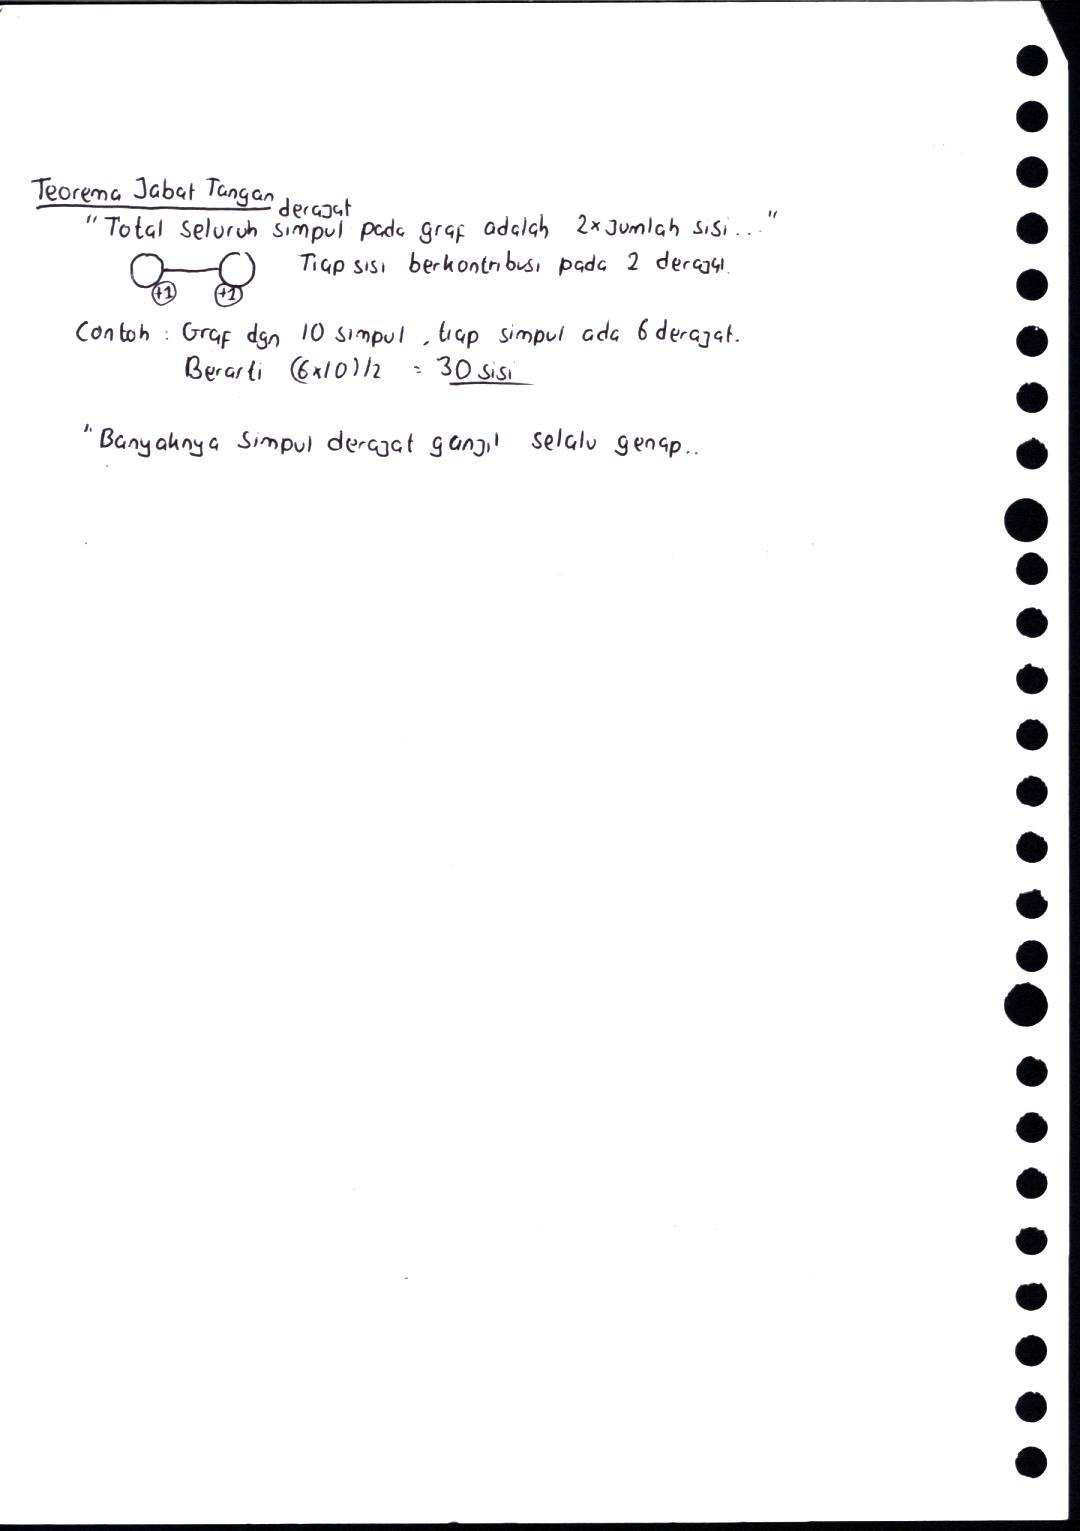 Teorema Jabat Tangan
derajat
"Total seluruh simpul pada graf adalah 2x jumlah sisi..."
Tiap sisi berkontribusi pada 2 derajat.
+1 +1
Contoh : Graf dgn 10 simpul, tiap simpul ada 6 derajat.
Berarti (6x10)/2 = 30 sisi
"Banyaknya simpul derajat ganjil selalu genap..